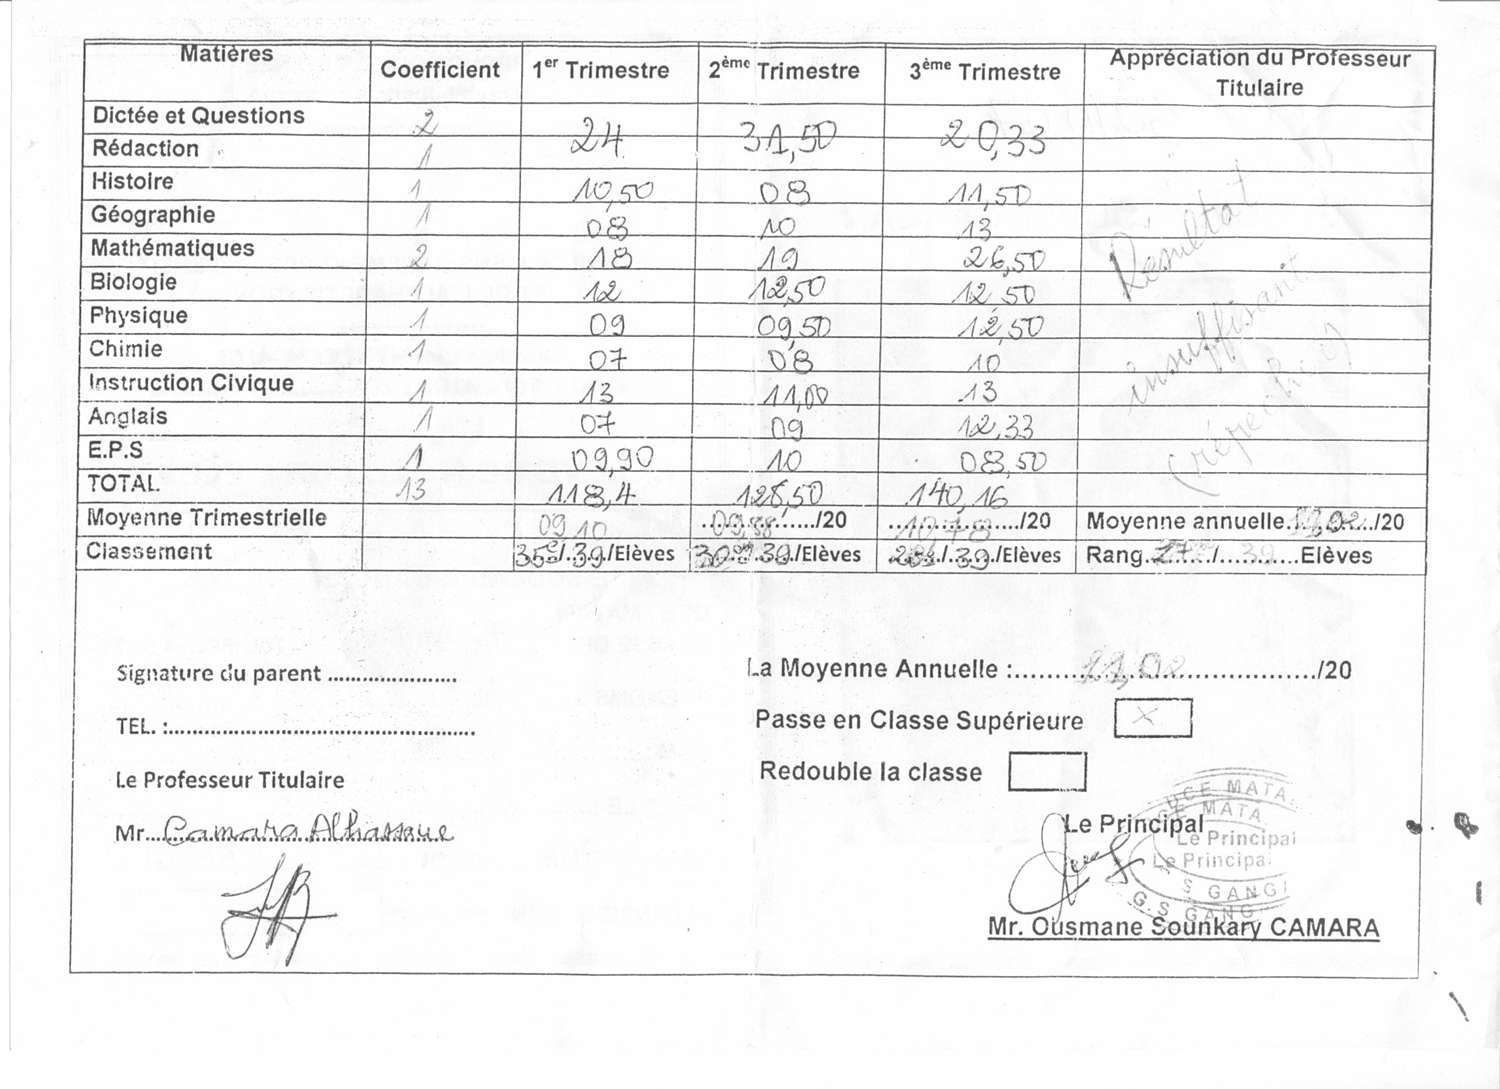 Matières Coefficient 1er Trimestre 2ème Trimestre 3ème Trimestre Appréciation du Professeur Titulaire
Dictée et Questions 2 24 31,50 20,33
Rédaction 1
Histoire 1 10,50 08 11,50
Géographie 1 08 10 13
Mathématiques 2 18 19 26,50
Biologie 1 12 12,50 12,50
Physique 1 09 09,50 12,50
Chimie 1 07 08 10
Instruction Civique 1 13 11,00 13
Anglais 1 07 09 12,33
E.P.S 1 09,90 10 08,50
TOTAL 13 118,4 128,50 140,16
Résultat
insuffisant
Moyenne Trimestrielle 09,10 09,88/20 10,78/20 Moyenne annuelle 11,02/20
Classement 35e/39/Elèves 30e/39/Elèves 28e/39/Elèves Rang 27e/39 Elèves
Signature du parent
TEL. :
Le Professeur Titulaire
Mr Camara Alhassane
La Moyenne Annuelle : 11,02/20
Passe en Classe Supérieure X
Redouble la classe
Le Principal
MATA
MATA
Le Principal
Le Principal
S GANGI
G.S GANG
Mr. Ousmane Sounkary CAMARA